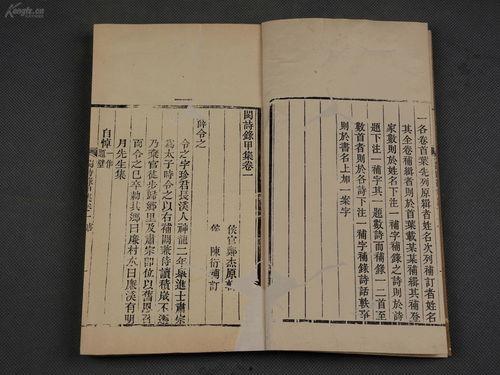 一各卷首葉先列原輯者姓名次列補訂者姓名
其全卷補輯者則於首葉載某某補輯其補登
家數則於姓名下注一補字補錄之詩則於詩
題下注一補字其一題數詩而補錄一二首至
數首者則於各詩下注一補字補錄詩話軼事
則於書名上加一案字
閩詩錄甲集卷一
侯官鄭杰原輯
侯 陳衍補訂
薛令之
令之字珍君長溪人神龍二年舉進士肅宗
為太子時令之以右補闕兼侍讀積歲不遷
乃棄官徒步歸鄉里及肅宗即位以舊恩召
而令之已卒勅其鄉曰廉村水曰廉溪有明
月先生集
自悼 一作題壁
Kongfz.cn